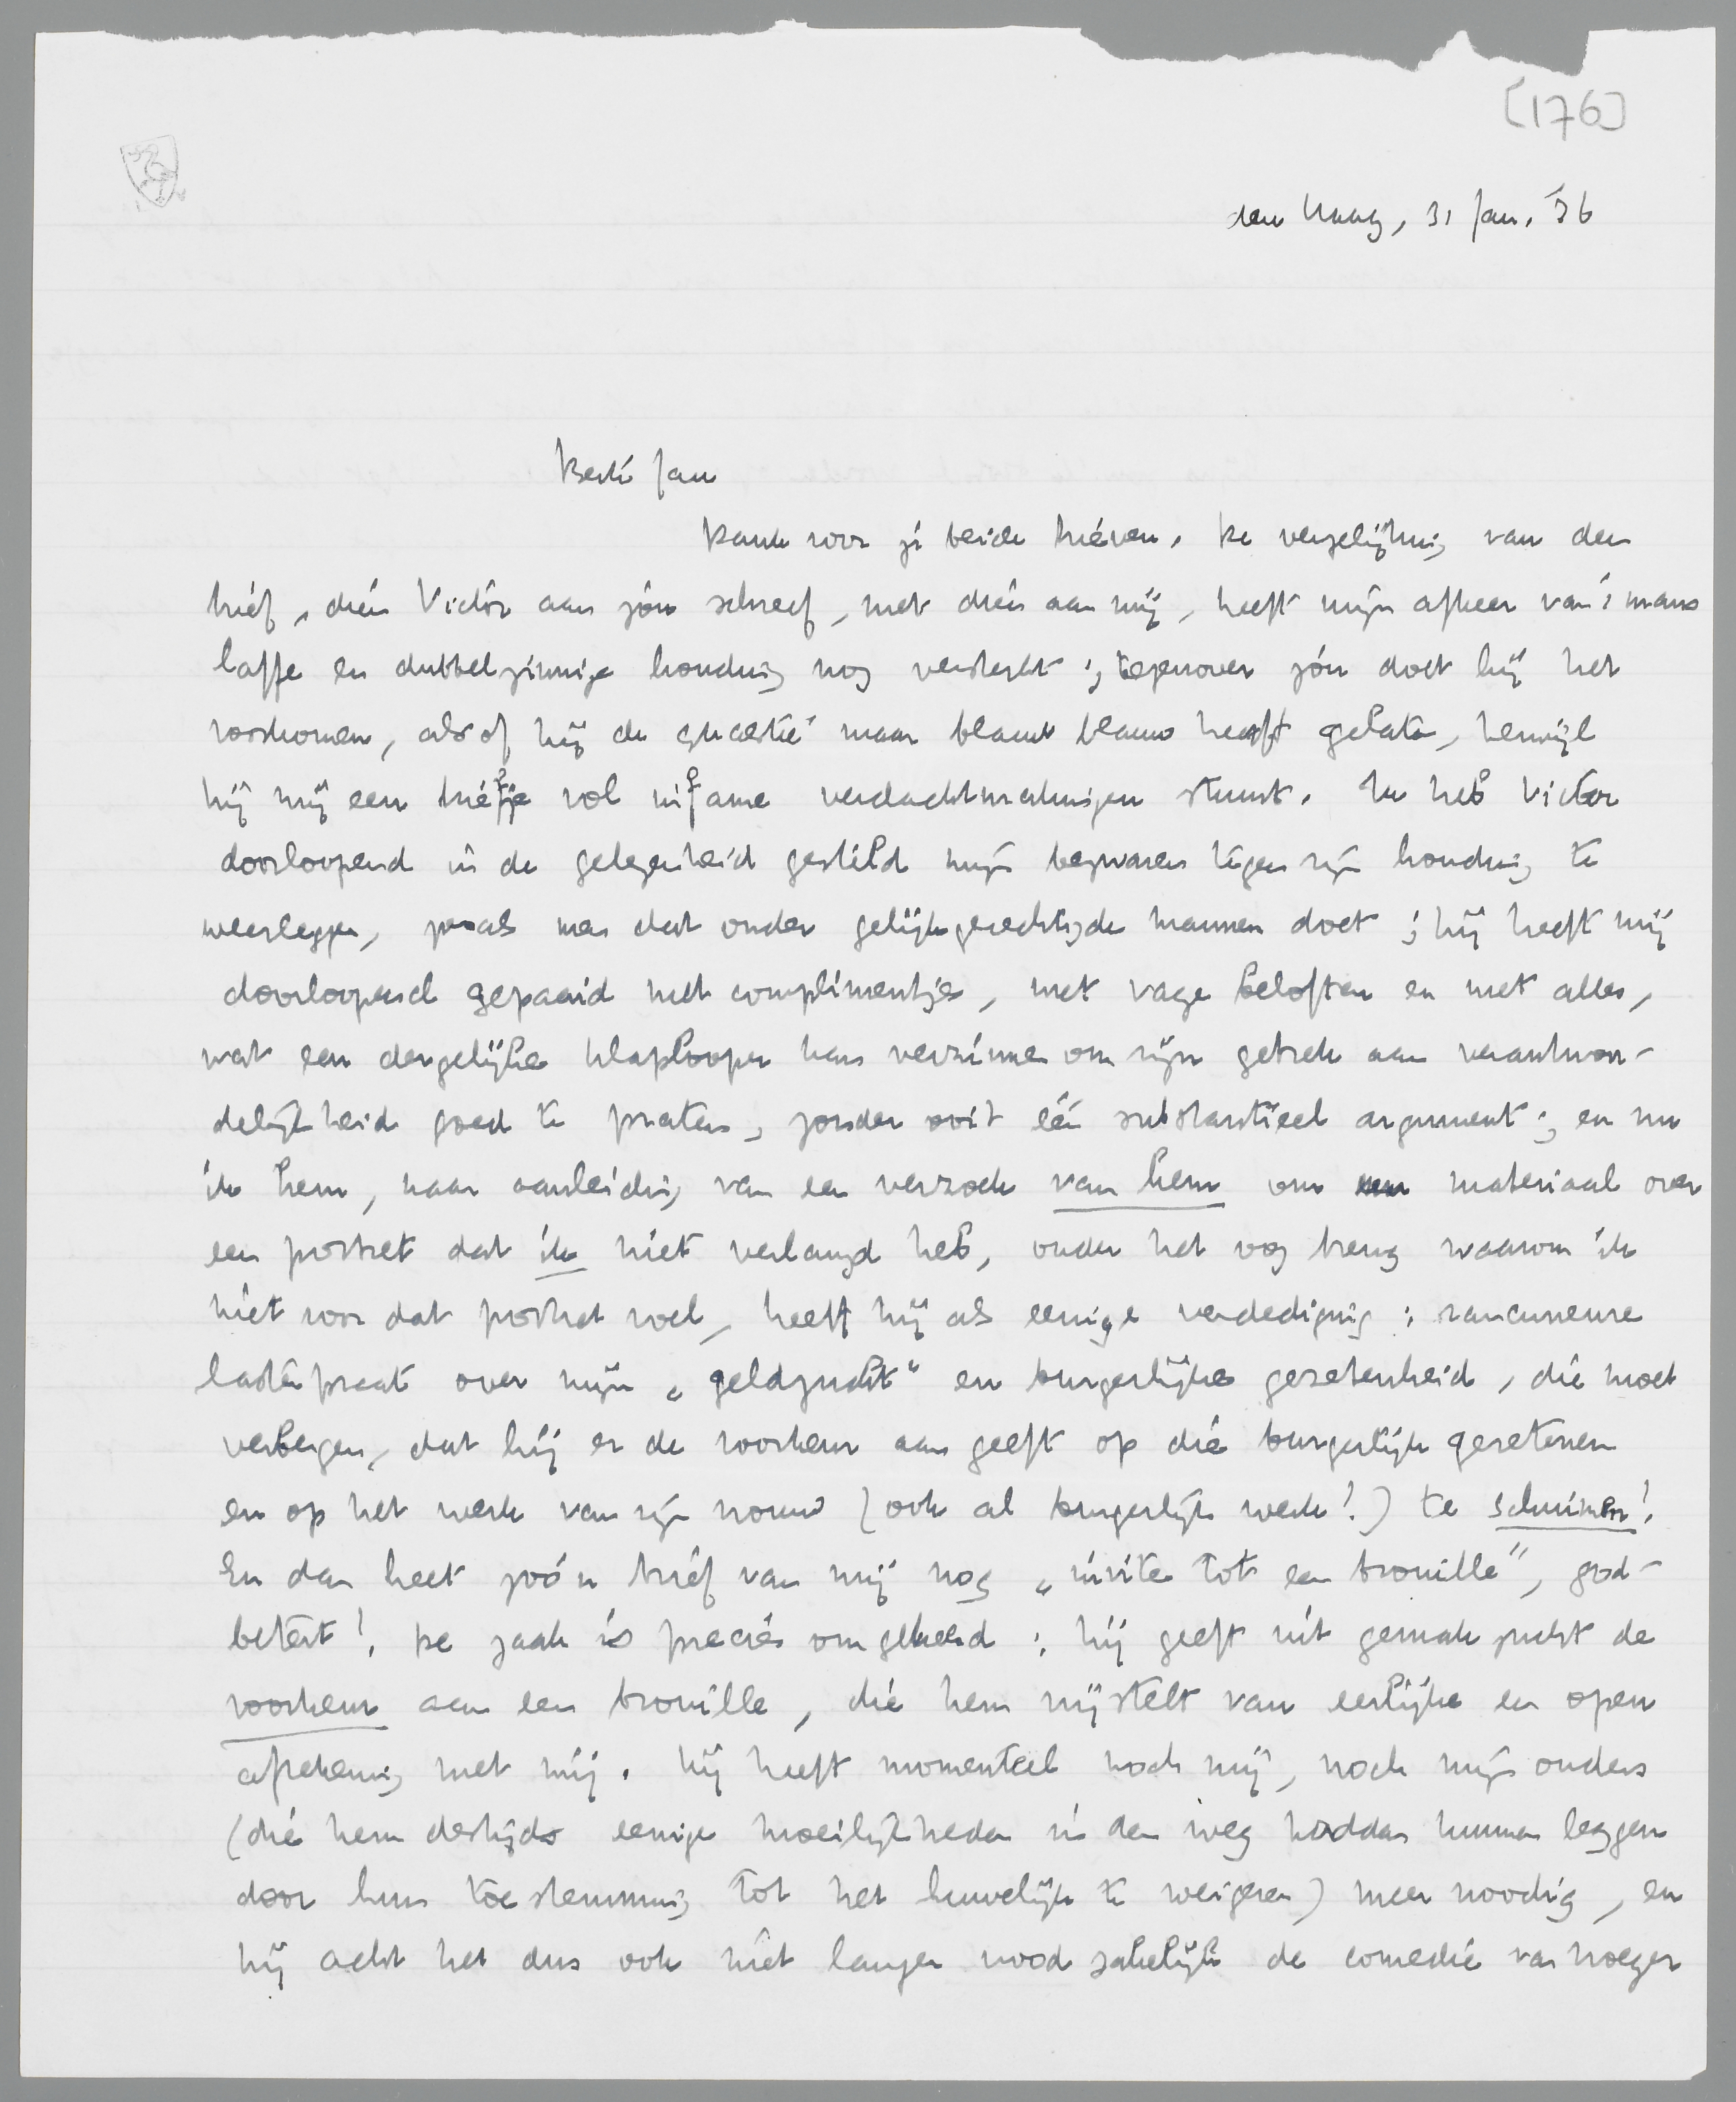 [176]
den Haag, 31 Jan. '36
Beste Jan
Dank voor je beide brieven. De vergelijking van den
brief, dien Victor aan jou schreef, met dien aan mij, heeft mijn afkeer van 's mans
laffe en dubbelzinnige houding nog versterkt; tegenover jou doet hij het
voorkomen, alsof hij de quaestie maar blauw blauw heeft gelaten, terwijl
hij mij een briefje vol infame verdachtmakingen stuurt. Ik heb Victor
doorloopend in de gelegenheid gesteld mijn bezwaren tegen zijn houding te
weerleggen, zooals men dat onder gelijkgerechtigde mannen doet; hij heeft mij
doorloopend gepaaid met complimentjes, met vage beloften en met alles,
wat een dergelijke klaplooper kan verzinnen om zijn gebrek aan verantwoor-
delijkheid goed te praten, zonder ooit één substantieel argument; en nu
ik hem, naar aanleiding van een verzoek van hem om materiaal over
een portret dat ik niet verlangd heb, onder het oog breng waarom ik
niet voor dat portret voel, heeft hij als eenige verdediging: rancuneuze
lasterpraat over mijn „geldzucht" en burgerlijke gezetenheid, die moet
verbergen, dat hij er de voorkeur aan geeft op die burgerlijk gezetenen
en op het werk van zijn vrouw (ook al burgerlijk werk!) te schuimen!
En dan heet zoo'n brief van mij nog „invite tot een brouille", god-
betert! De zaak is precies omgekeerd: hij geeft uit gemakzucht de
voorkeur aan een brouille, die hem vrijstelt van eerlijke en open
afrekening met mij. Hij heeft momenteel noch mij, noch mijn ouders
(die hem destijds eenige moeilijkheden in den weg hadden kunnen leggen
door hun toestemming tot het huwelijk te weigeren) meer noodig, en
hij acht het dus ook niet langer noodzakelijk de comedie van vroeger